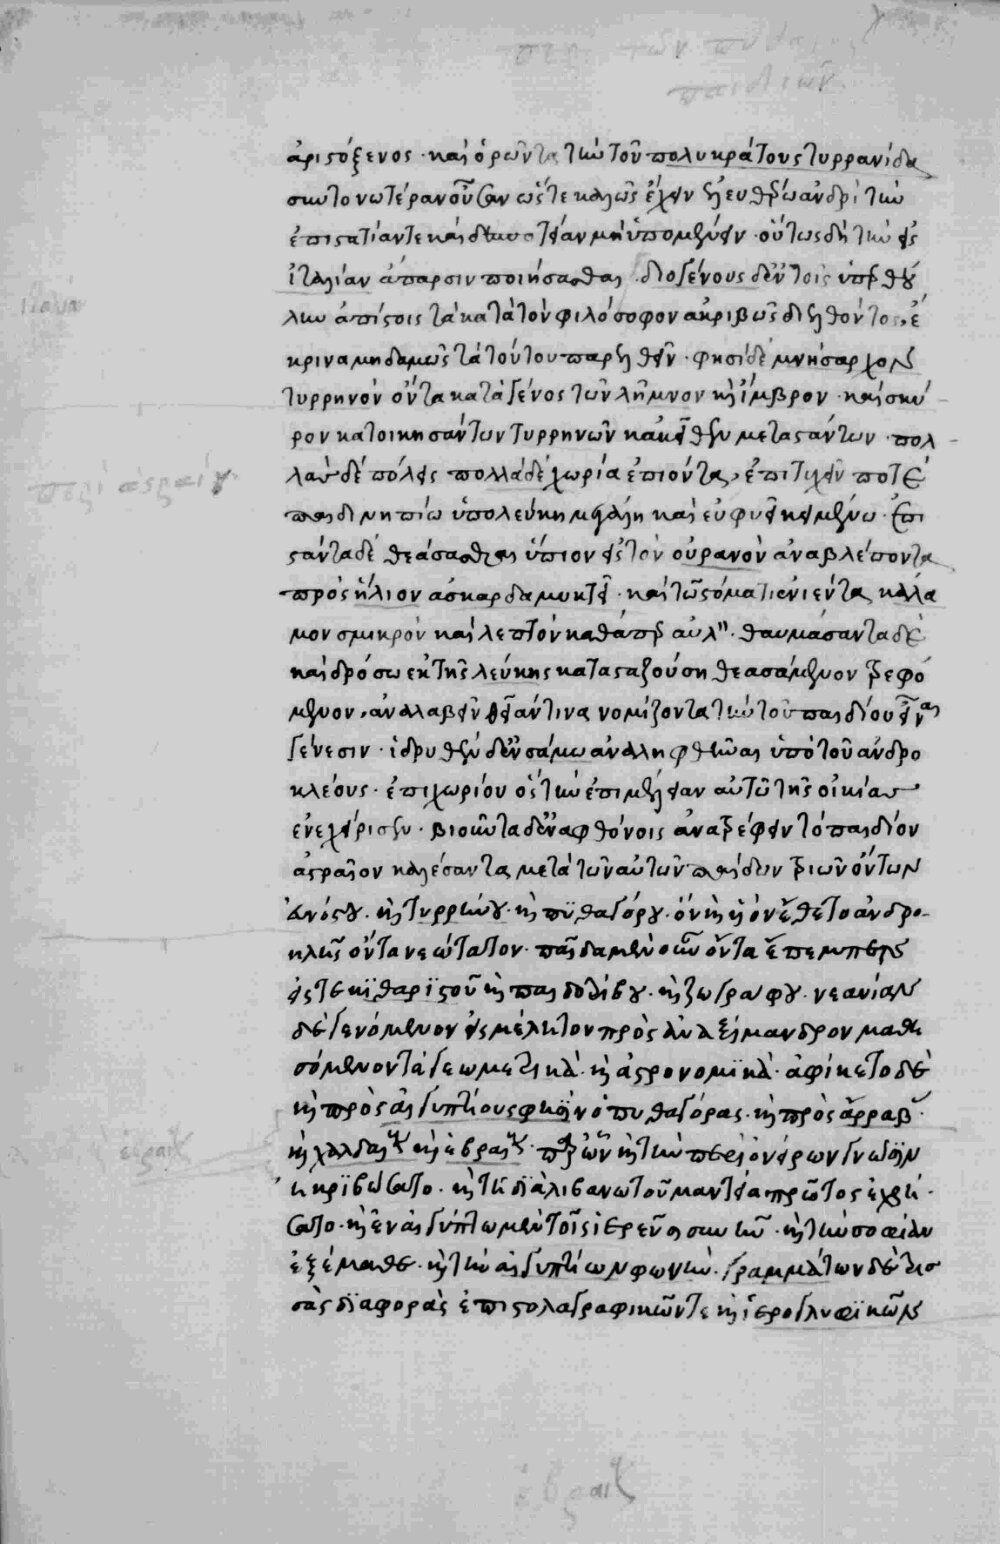 περὶ τῶν πυθαγο
παιδιῶν
ἀριστόξενος · καὶ ὁρῶντα τὴν τοῦ πολυκράτους τυρρανίδα
συντονωτέραν οὖσαν ὥστε καλῶς ἔχειν ἐλευθέρω ἀνδρὶ τὴν
ἐπιστατίαν τε καὶ δεσποτείαν μὴ ὑπομένειν · οὕτως δὴ τὴν εἰς
ἰταλίαν ἄπαρσιν ποιήσασθαι · διογένους δ' ἐν τοῖς ὑπὲρ θού
λην ἀπίστοις τὰ κατὰ τὸν φιλόσοφον ἀκριβῶς διελθόντος, ἔ
κρινα μηδαμῶς τὰ τούτου παρελθεῖν · φησὶ δὲ μνήσαρχον
τυρρηνὸν ὄντα κατὰ γένος τῶν λῆμνον καὶ ἴμβρον · καὶ σκύ
ρον κατοικησάντων τυρρηνῶν κἀκεῖθεν μεταστάντων · πολ
λὰς δὲ πόλεις πολλὰ δὲ χωρία ἐπιόντα, ἐπιτυχεῖν ποτὲ
παιδὶ νηπίω ὑπὸ λεύκη μεγάλη καὶ εὐφυεῖ κειμένω · ἐπι
στάντα δὲ θεάσασθαι ὕπτιον εἰς τὸν οὐρανὸν ἀναβλέποντα
πρὸς ἥλιον ἀσκαρδαμυκτεὶ · καὶ τῶ στόματι ἐνιέντα καλά
μον σμικρὸν καὶ λεπτὸν καθάπερ αὐλη · θαυμάσαντα δὲ
καὶ δρόσω ἐκ τῆς λεύκης κατασταζούση θεασάμενον τρεφό
μενον, ἀναλαβεῖν θεῖάν τινα νομίζοντα τὴν τοῦ παιδίου εἶναι
γένεσιν · ἱδρυθέν δ' ἐν σάμω ἀναληφθῆναι ὑπὸ τοῦ ἀνδρο
κλέους · ἐπιχωρίου ὃς τὴν ἐπιμέλειαν αὐτῶ τῆς οἰκίας
ἐνεχείρισεν · βιοῦντα δ' ἐν ἀφθόνοις ἀνατρέφειν τὸ παιδίον
ἀστραῖον καλέσαντα, μετὰ τῶν αὐτῶν παίδων τριῶν ὄντων
εὐνόστου · καὶ τυρρηνοῦ · καὶ πυθαγόρου · ὃν καὶ υἱὸν ἔθετο ἀνδρο-
κλῆς ὄντα νεώτατον · παῖδα μὲν οὖν ὄντα ἔπεμπεν
εἴς τε κιθαριστοῦ καὶ παιδοτρίβου · καὶ ζωγράφου · νεανίαν
δὲ γενόμενον εἰς μίλητον πρὸς ἀναξίμανδρον μαθη
σόμενον τὰ γεωμετρικὰ · καὶ ἀστρονομικὰ · ἀφίκετο δὲ
καὶ πρὸς αἰγυπτίους φησὶν ὁ πυθαγόρας · καὶ πρὸς ἄρραβ
καὶ χαλδαι καὶ ἑβραι · παρ' ὧν καὶ τὴν περὶ ὀνείρων γνῶσιν
ἠκριβώσατο · καὶ τῆ διὰ λιβανωτοῦ μαντεία πρῶτος ἐχρή ·
σατο · καὶ ἐν αἰγύπτω μὲν τοῖς ἱερεῦσι συνῆν · καὶ τὴν σοφίαν
ἐξέμαθε · καὶ τὴν αἰγυπτίων φωνὴν · γραμμάτων δὲ τρισ
σὰς διαφορὰς ἐπιστολογραφικῶν τε καὶ ἱερογλυφικῶν
περὶ ἀστραίου
ἑβραι
ἑβραι